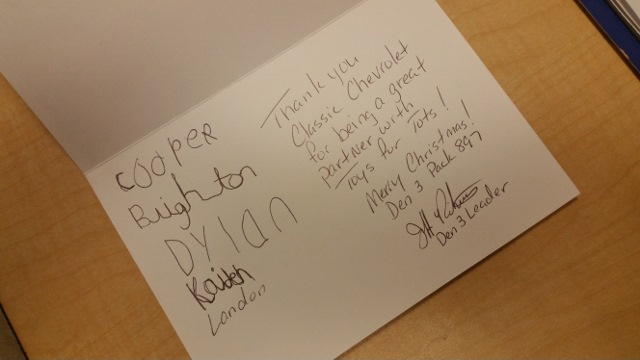 Cooper
Brighton
Dylan
Kaiden
Landon
Thank you
Classic Chevrolet
for being a great
partner with
Toys for Tots!
Merry Christmas!
Den 3 Pack 897
Den 3 Leader